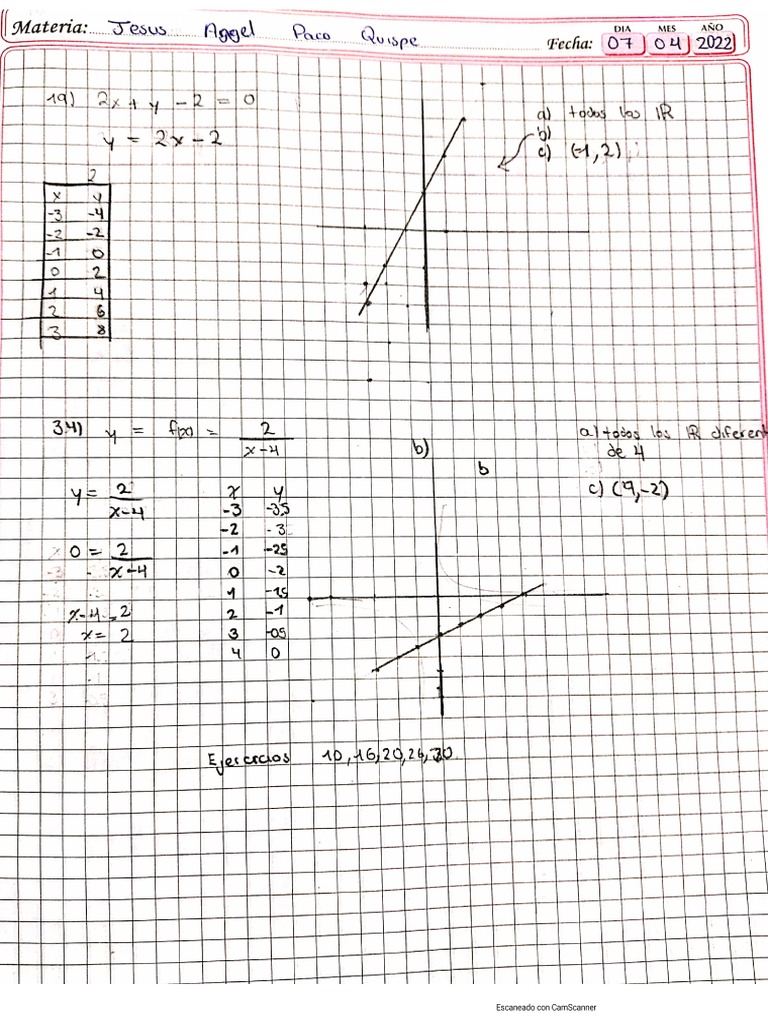 Materia: Jesus Aggel Paco Quispe
DIA MES AÑO
Fecha: 07 04 2022
19) 2x + y - 2 = 0
y = 2x - 2
a) todos los IR
b)
c) (-1, 2)
2
x y
-3 -4
-2 -2
-1 0
0 2
1 4
2 6
3 8
34) y = f(x) = 2 / x-4
b)
b
a) todos los IR diferent
de 4
c) (9,-2)
y = 2 / x-4
0 = 2 / x-4
x-4 = 2
x = 2
x y
-3 -35
-2 -3
-1 -25
0 -2
1 -15
2 -1
3 -05
4 0
Ejercicios 10, 16, 20, 26, 30
Escaneado con CamScanner